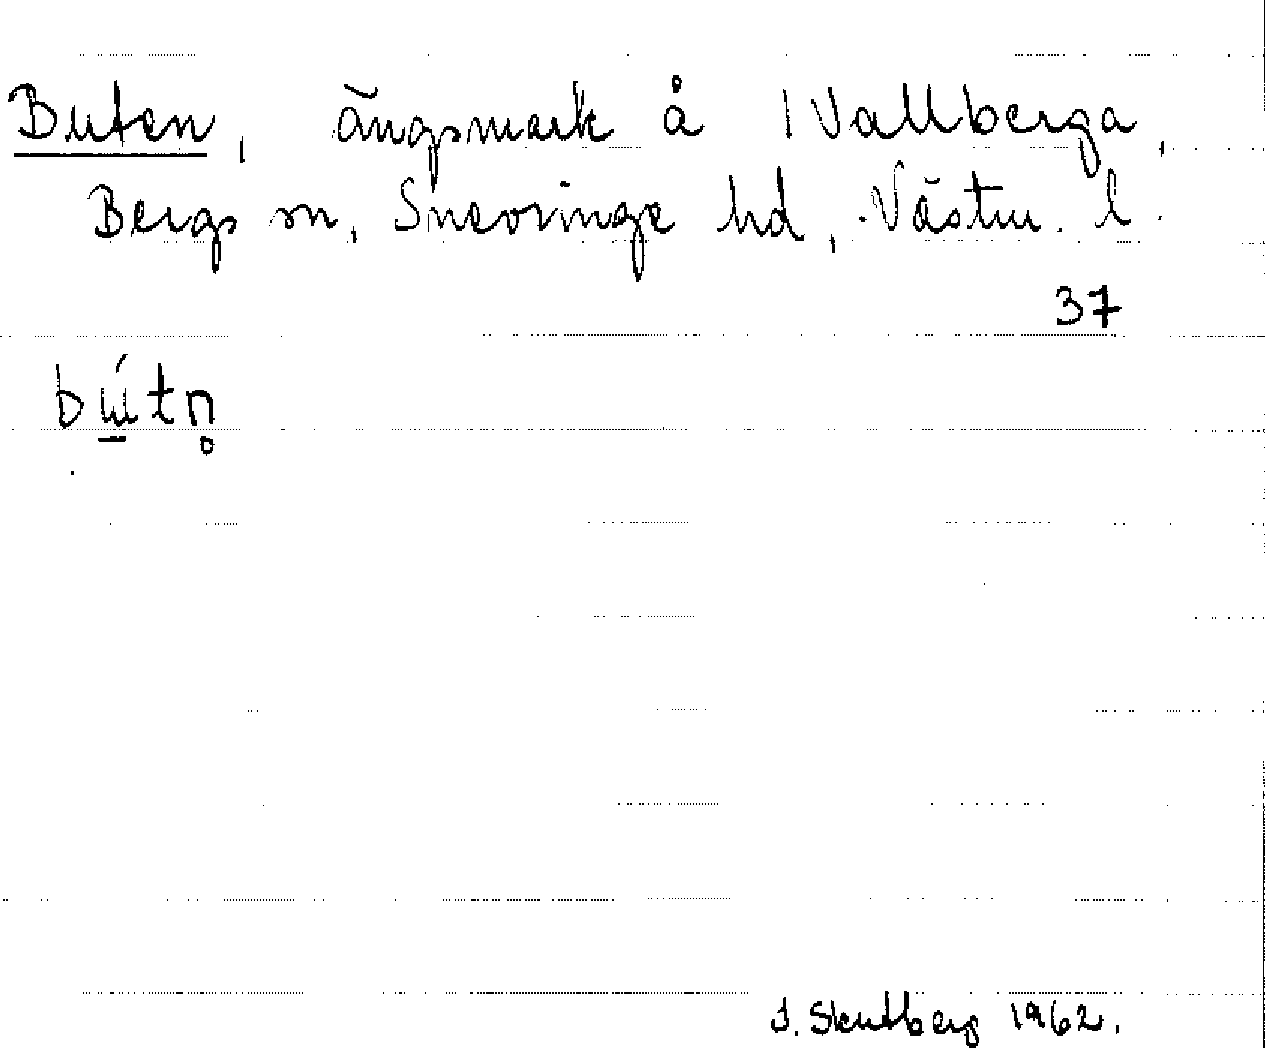 Buten, ängsmark å 1 Vallberga,
Bergs sn, Snevringe hd, Västm. l.
37
bútn̥
I. Skutberg 1962.